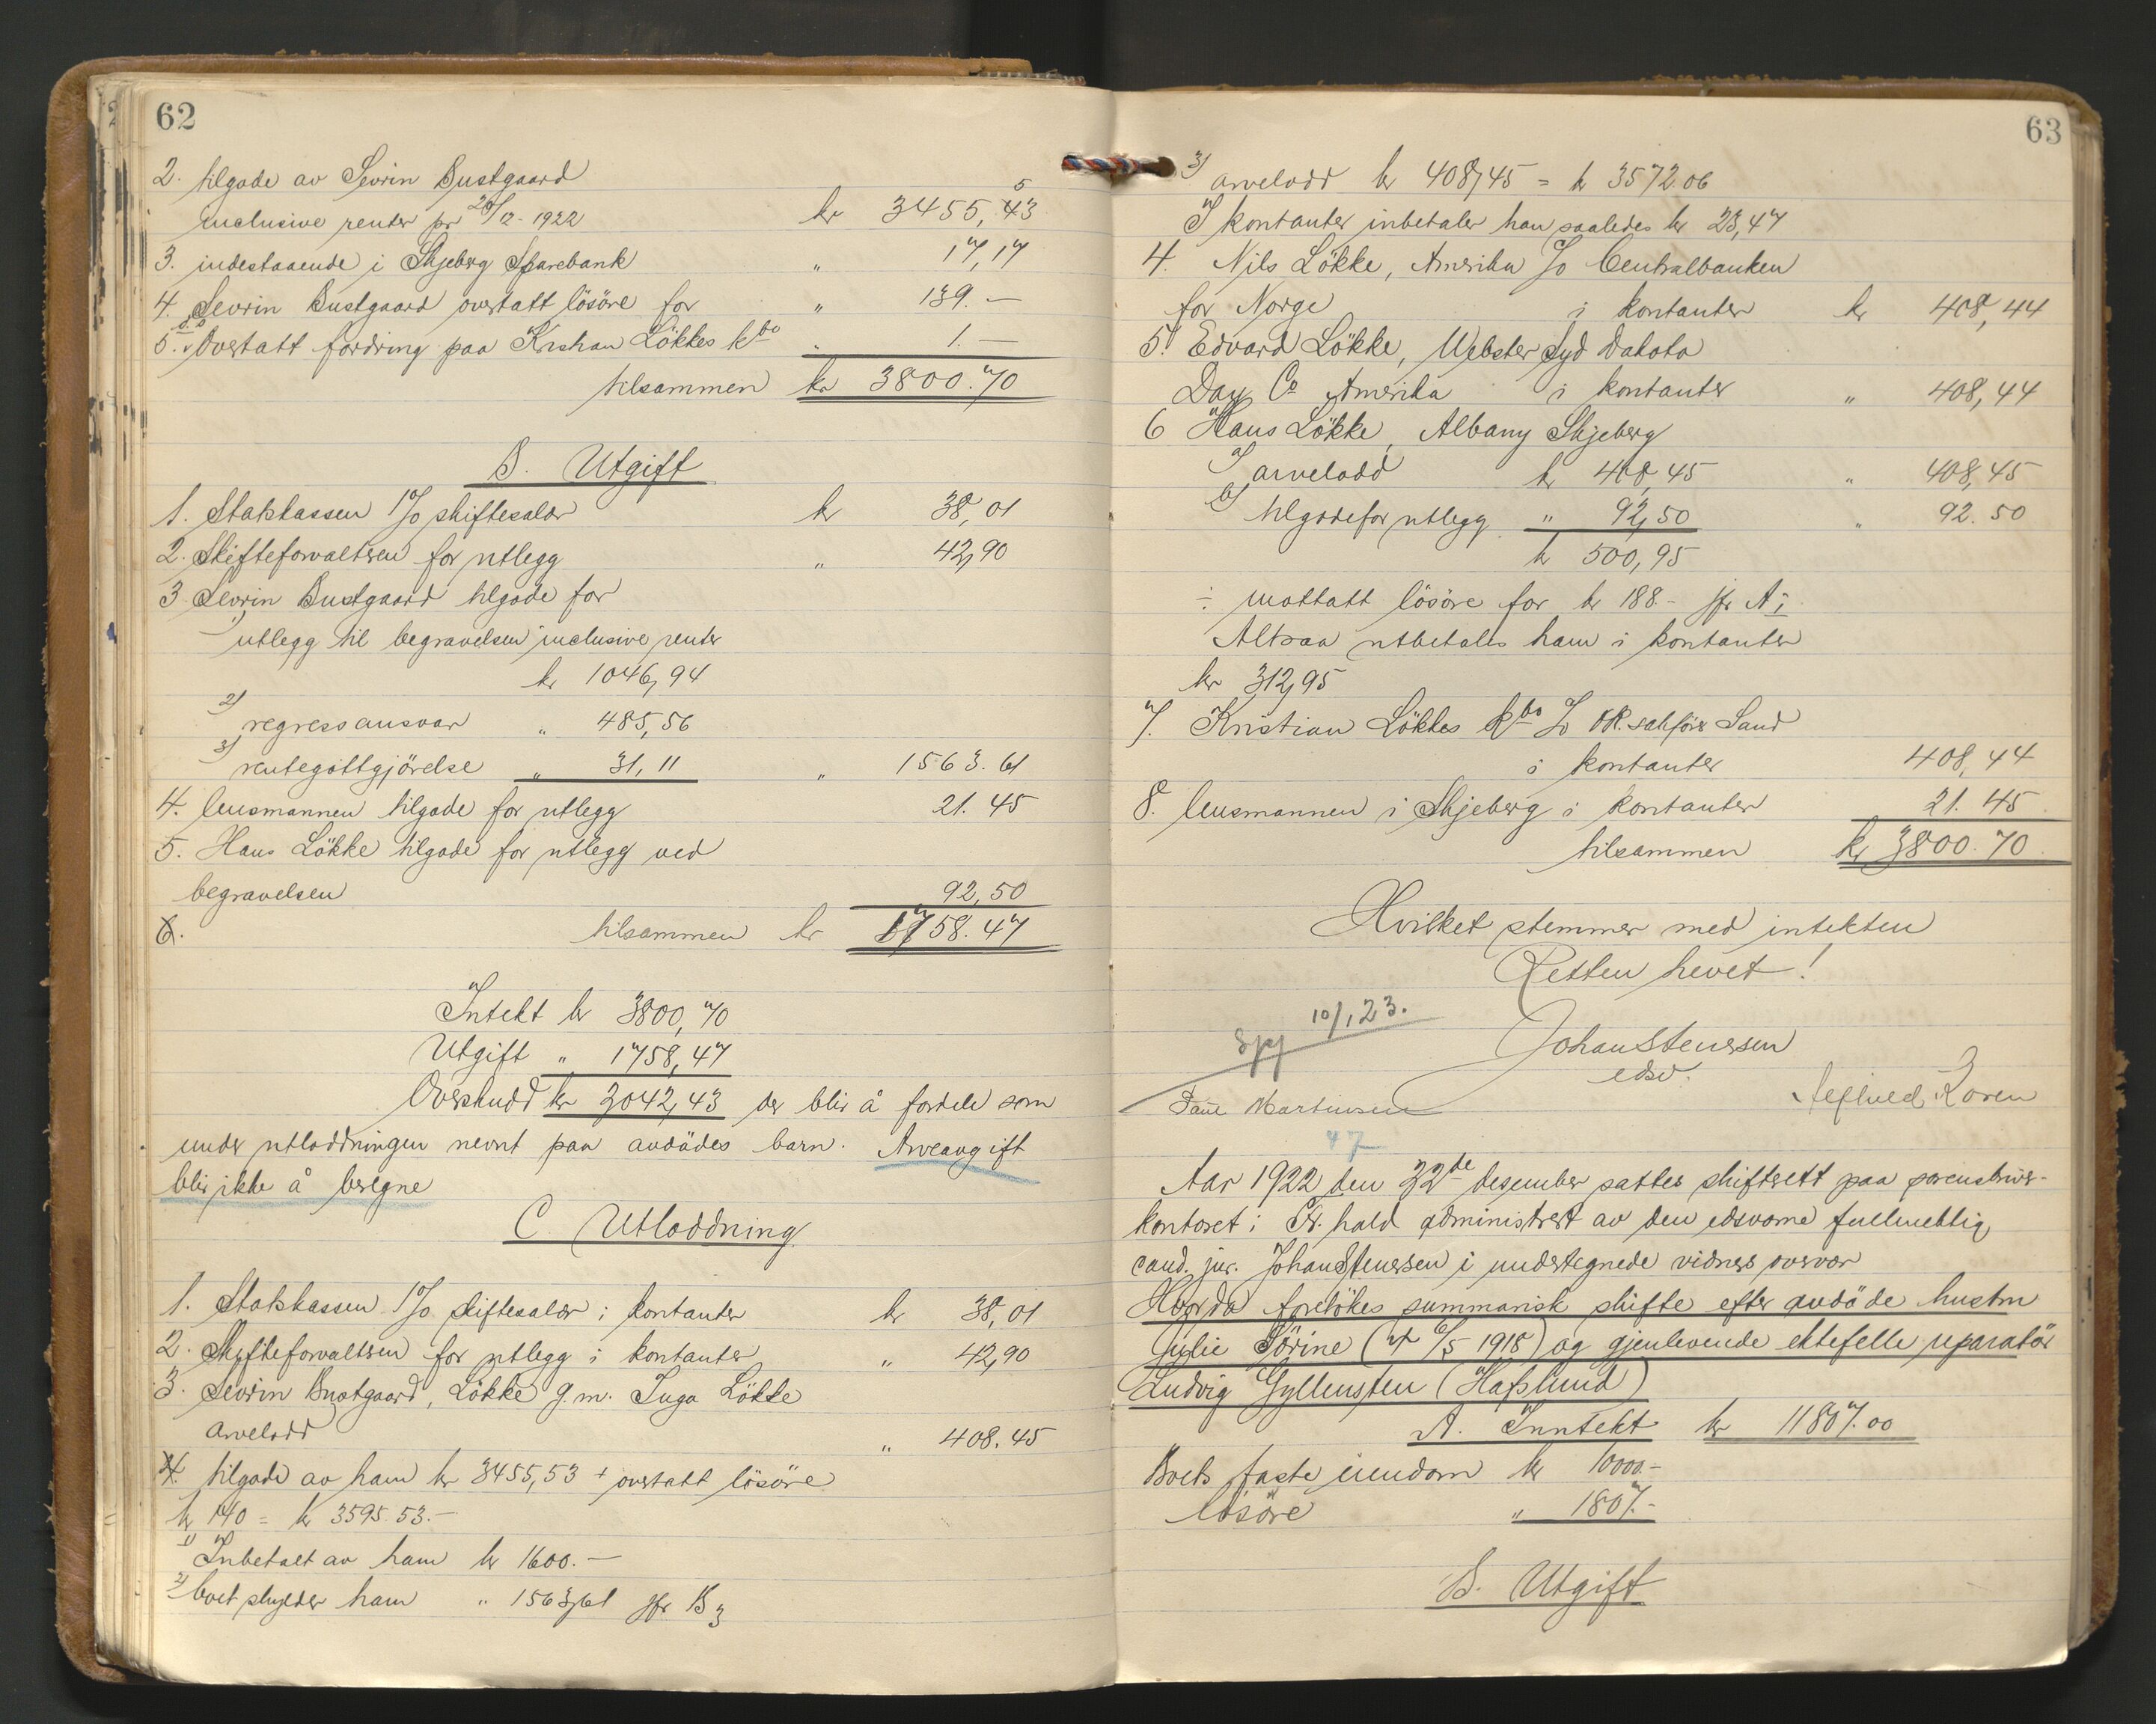 62
2. tilgode av Sevrin Bustgaard
inclusive renter pr 20/12 - 1922 kr 3455,53
3. indestaaende i Skjeberg Sparebank " 17,17
4. Sevrin Bustgaard overtatt lösöre for " 139.—
5. s.s. Overtatt fordring paa Kristian Lökkes kbo " 1.—
tilsammen kr 3800.70
B. Utgift
1. Statskassen 1% skiftesalær kr 38,01
2. Skifteforvalteren for utlegg " 42,90
3. Sevrin Bustgaard tilgode for
1) utlegg til begravelsen inclusive renter
kr 1046,94
2) regressansvar " 485,56
3) rentegottgjörelse " 31,11 " 1563.61
4. lensmannen tilgode for utlegg 21.45
5. Hans Lökke tilgode for utlegg ved
begravelsen 92,50
6. tilsammen kr 1758.47
Intekt kr 3800,70
Utgift " 1758,47
Overskudd kr 2042,43 der blir å fordele som
under utloddningen nevnt paa avdödes barn. Arveavgift
blir ikke å beregne
C. Utloddning
1. Statskassen 1% skiftesalær i kontanter kr 38,01
2. Skifteforvalteren for utlegg i kontanter " 42,90
3. Sevrin Bustgaard, Lökke g.m. Inga Lökke
arvelodd " 408.45
4. tilgode av ham kr 3455,53 + overtatt lösöre
kr 140 = kr 3595.53.—
1) Inbetalt av ham kr 1600.—
2) boet skylder ham " 1563,61 jfr B3
63
3) arvelodd kr 408,45 = kr 3572.06
I kontanter inbetaler han saaledes kr 23,47
4. Nils Lökke, Amerika % Centralbanken
for Norge i kontanter kr 408,44
5. Edvard Lökke, Webster Syd Dakota
Day Co Amerika i kontanter " 408,44
6 Hans Lökke, Albany Skjeberg
a) arvelodd kr 408,45 " 408,45
b) tilgode for utlegg " 92,50 " 92.50
kr 500,95
÷ mottatt lösöre for kr 188.- jfr A1
Altsaa utbetales ham i kontanter
kr 312,95
7. Kristian Lökkes kbo % OR. sakförer Sand
i kontanter 408,44
8. lensmannen i Skjeberg i kontanter 21.45
tilsammen kr 3800.70
Hvilket stemmer med intekten
Retten hevet!
10/1 23.
Johan Stenersen
edsv.
Martinsen
47
Aar 1922 den 22de desember sattes skifterett paa sorenskriver-
kontoret i Fr.hald administrert av den edsvorne fullmektig
cand. jur. Johan Stenersen i undertegnede vidners overvær
Hvorda foretokes summarisk skifte efter avdöde hustru
Julie Sörine († 6/5 1918) og gjenlevende ektefelle reparatör
Ludvig Gyllensten (Hafslund)
A. Inntekt kr 11807.00
Boets faste eiendom kr 10000.-
lösöre " 1807.-
B. Utgift